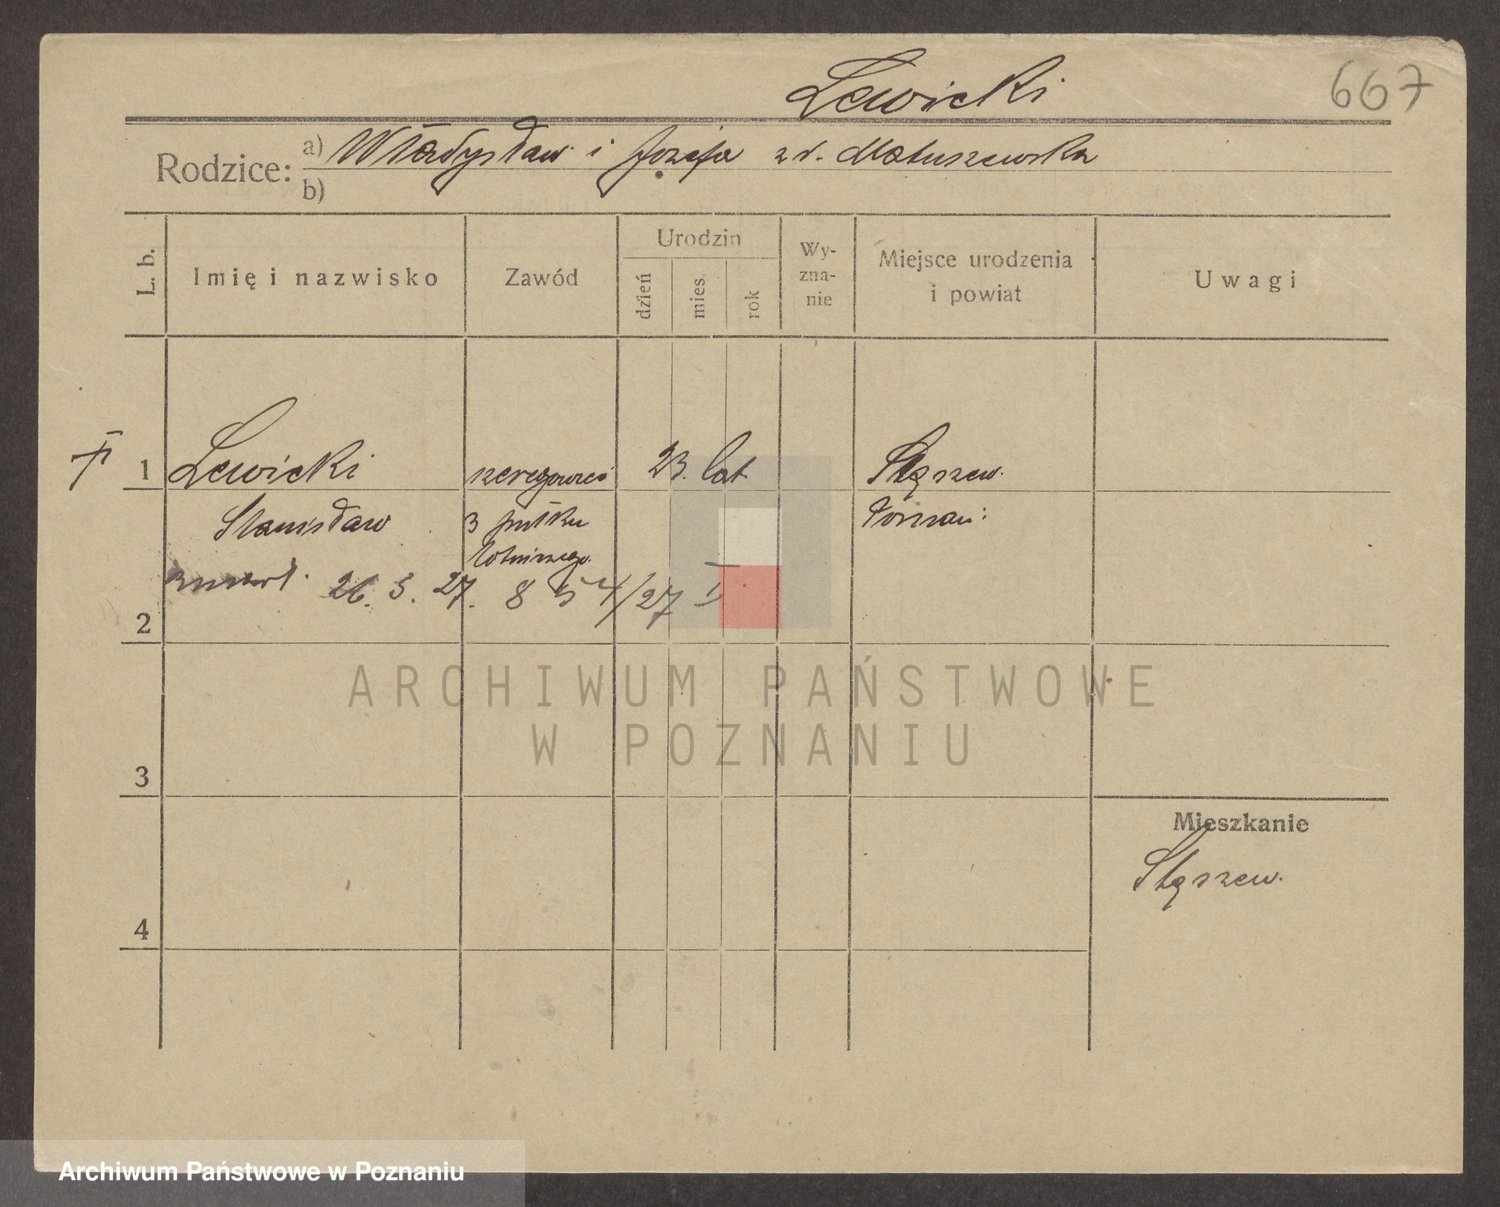 Lewicki
667
Rodzice: a) Władysław i Józefa z d. Matuszewska
b)
L. b.
Imię i nazwisko
Zawód
Urodzin
dzień
mies.
rok
Wy-
zna-
nie
Miejsce urodzenia
i powiat
Uwagi
1 Lewicki szeregowiec 23. lat Stęszew.
Stanisław 3 pułku Poznań:
lotniczego.
zmarł. 26. 3. 27. 854/27 I
2
ARCHIWUM PAŃSTWOWE
W POZNANIU
3
Mieszkanie
Stęszew.
4
Archiwum Państwowe w Poznaniu